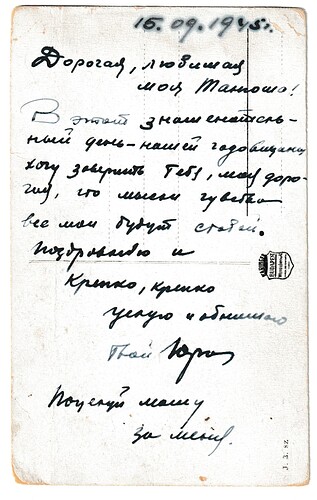 15.09.1945г.
Дорогая, любимая
моя Танюша!
В этот знаменатель-
ный день-нашей годовщины
хочу заверить тебя, моя доро-
гая, что мысли чувства
все мои будут с тобой.
Поздравляю и
Крепко, крепко
целую и обнимаю
Твой Юра
Поцелуй маму
за меня.